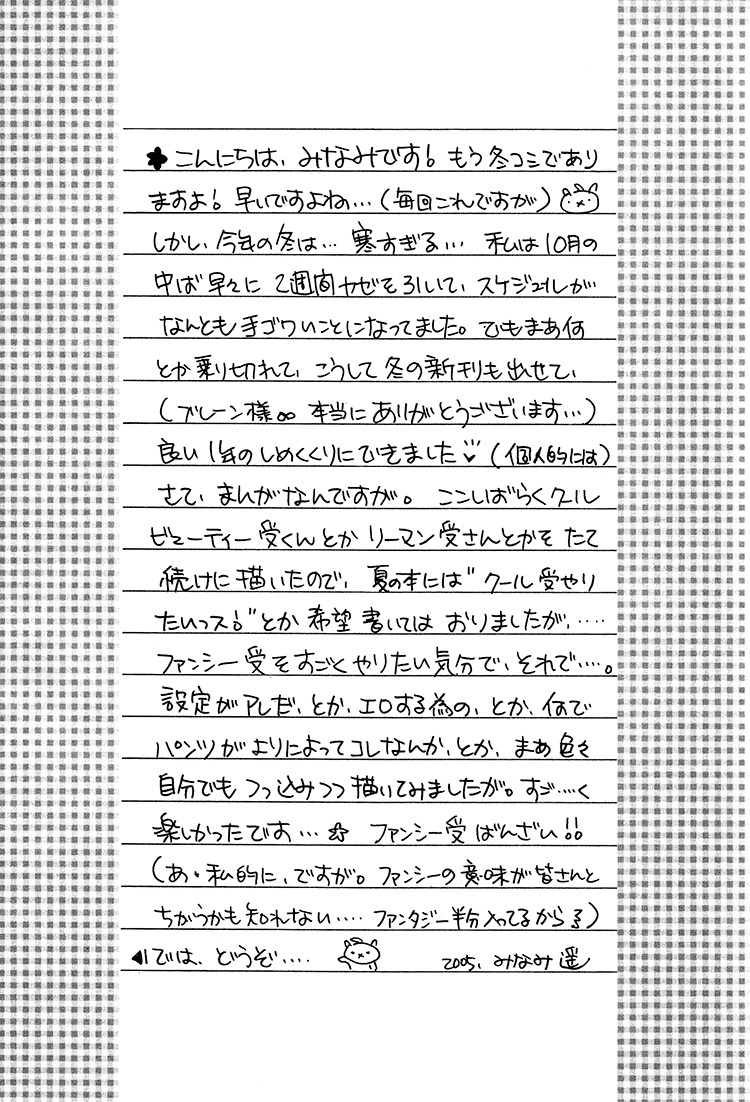 ✽ こんにちは、みなみです! もう冬コミであり
ますよ! 早いですよね…(毎回これですが)
しかし、今年の冬は… 寒すぎる… 私は10月の
中ば早々に2週間カゼを引いて、スケジュールが
なんとも手ゴワいことになってました。でもまあ何
とか乗り切れて、こうして冬の新刊も出せて、
(ブレーン様∞ 本当にありがとうございます…)
良い1年のしめくくりにできました♡(個人的には)
さて、まんがなんですが。ここしばらくクール
ビューティー受くんとかリーマン受さんとかを たて
続けに描いたので、夏の本には"クール受やり
たいっス!"とか希望書いてはおりましたが、……
ファンシー受をすごくやりたい気分で、それで……。
設定がアレだ、とか、エロする為の、とか、何で
パンツがよりによってコレなんか、とか、まあ色々
自分でもつっ込みつつ描いてみましたが。すご……く
楽しかったです…☆ ファンシー受ばんざい!!
(あ・私的に、ですが。ファンシーの意味が皆さんと
ちがうかも知れない…… ファンタジー半分入ってるから)
◀では、どうぞ…… 2005. みなみ遥